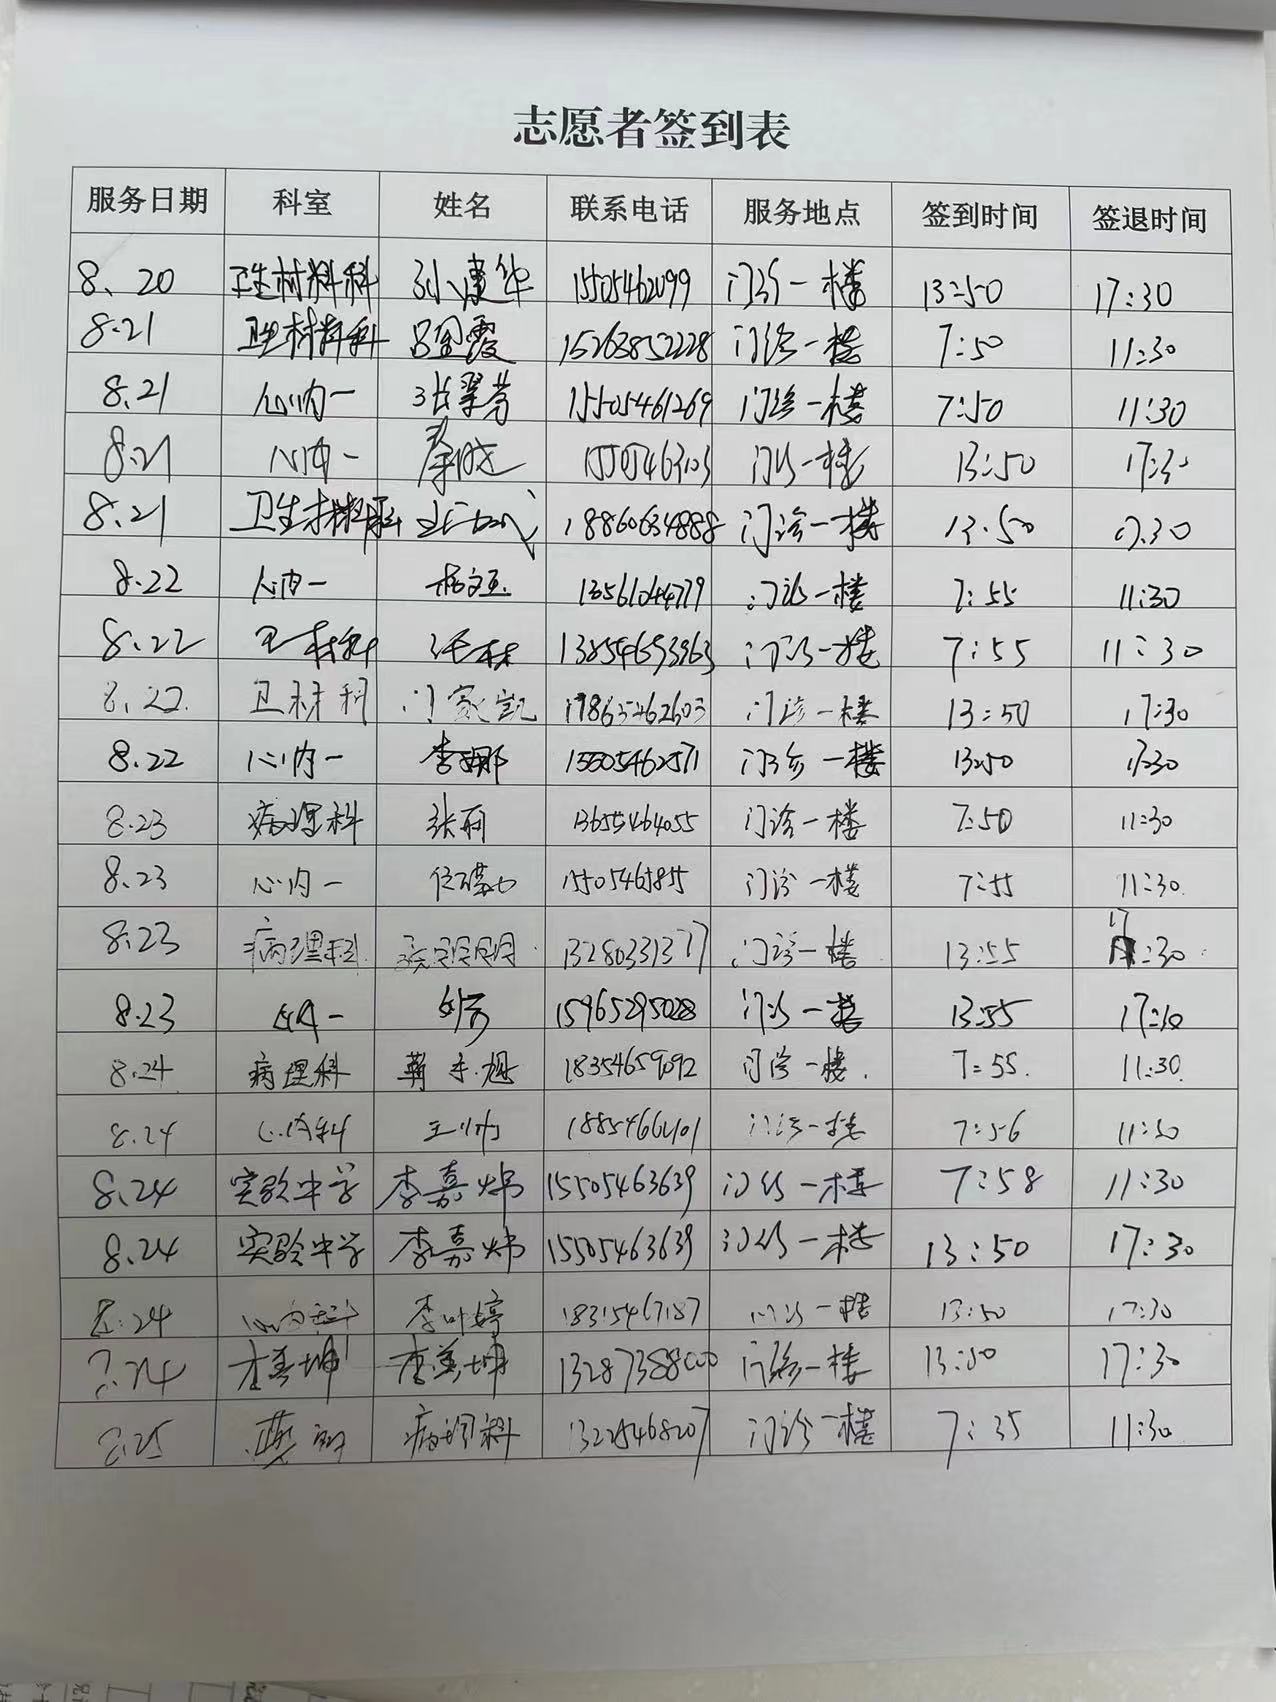 志愿者签到表
服务日期 科室 姓名 联系电话 服务地点 签到时间 签退时间
8、20 卫生材料科 孙建华 15505462099 门诊一楼 13:50 17:30
8.21 卫生材料科 吕金霞 15263852228 门诊一楼 7:50 11:30
8.21 心内一 张翠芳 15505461269 门诊一楼 7:50 11:30
8.21 心内一 门诊一楼 13:50 17:30
8.21 卫生材料科 18860634888 门诊一楼 13.50 17.30
8.22 心内一 杨文玉 13561044779 门诊一楼 7:55 11:30
8.22 卫材科 张林 门诊一楼 7:55 11:30
8.22 卫材科 门家凯 17865462603 门诊一楼 13:50 17:30
8.22 心内一 李娜 15505462571 门诊一楼 13:50 17:30
8.23 病理科 张丽 13655464055 门诊一楼 7:50 11:30
8.23 心内一 门诊一楼 7:55 11:30
8.23 病理科 13280331377 门诊一楼 13:55 17:30
8.23 心内一 15965295028 门诊一楼 13:55
8.24 病理科 18354659092 门诊一楼. 7:55. 11:30.
8.24 心内科 王帅 门诊一楼 7:56 11:30
8.24 实验中学 李嘉炜 15505463639 门诊一楼 7:58 11:30
8.24 实验中学 李嘉炜 15505463639 门诊一楼 13:50 17:30
8.24 心内科 李叶婷 18315467187 门诊一楼 13:50 17:30
8.24 李美坤 李美坤 13287388000 门诊一楼 13:50 17:30
8.25 病理科 13225468207 门诊一楼 7:35 11:30